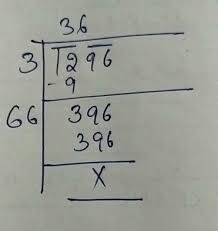 36
3 12 96
- 9
66 396
396
X